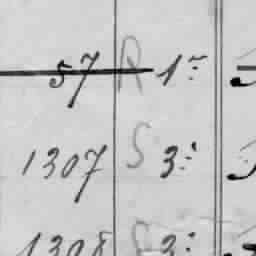 57 R 1:
1307 S 3:
1308 S 3: